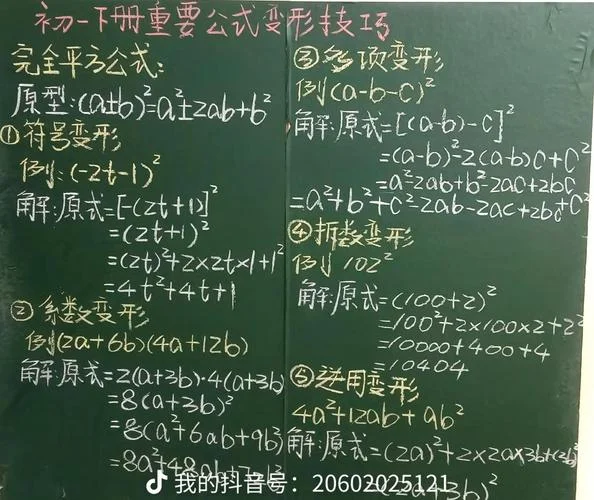 初一下册重要公式变形技巧
完全平方公式:
原型:(a±b)²=a²±2ab+b²
①符号变形
例:(-2t-1)²
解:原式=[-(2t+1)]²
=(2t+1)²
=(2t)²+2×2t×1+1²
=4t²+4t+1
②系数变形
例(2a+6b)(4a+12b)
解:原式=2(a+3b)·4(a+3b)
=8(a+3b)²
=8(a²+6ab+9b²)
=8a²+48ab+
③多项变形
例(a-b-c)²
解:原式=[(a-b)-c]²
=(a-b)²-2(a-b)c+c²
=a²-2ab+b²-2ac+2bc
=a²+b²+c²-2ab-2ac+2bc+c²
④拆数变形
例 102²
解:原式=(100+2)²
=100²+2×100×2+2²
=10000+400+4
=10404
⑤逆用变形
4a²+12ab+9b²
解:原式=(2a)²+2×2a×3b+(3b)²
=(2a+3b)²
我的抖音号:20602025121